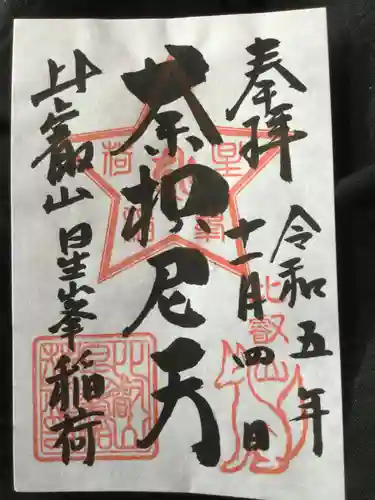 奉拝
令和五年
十二月四日
荼枳尼天
比叡山
星峯稲荷
比叡山